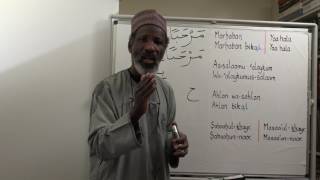 مَرْحَبًا
Marhaban | Yaa hala
مَرْحَبًا
Marhaban bikal | Yaa hala
As-salaamu 'alaykum
Wa-'alaykumus-salaam
ح
Ahlan wa-sahlan
Ahlan bikal
Sabaahul-khayr | Masaa'ul-khayr
Sabaahun-noor | Masaa'un-noor